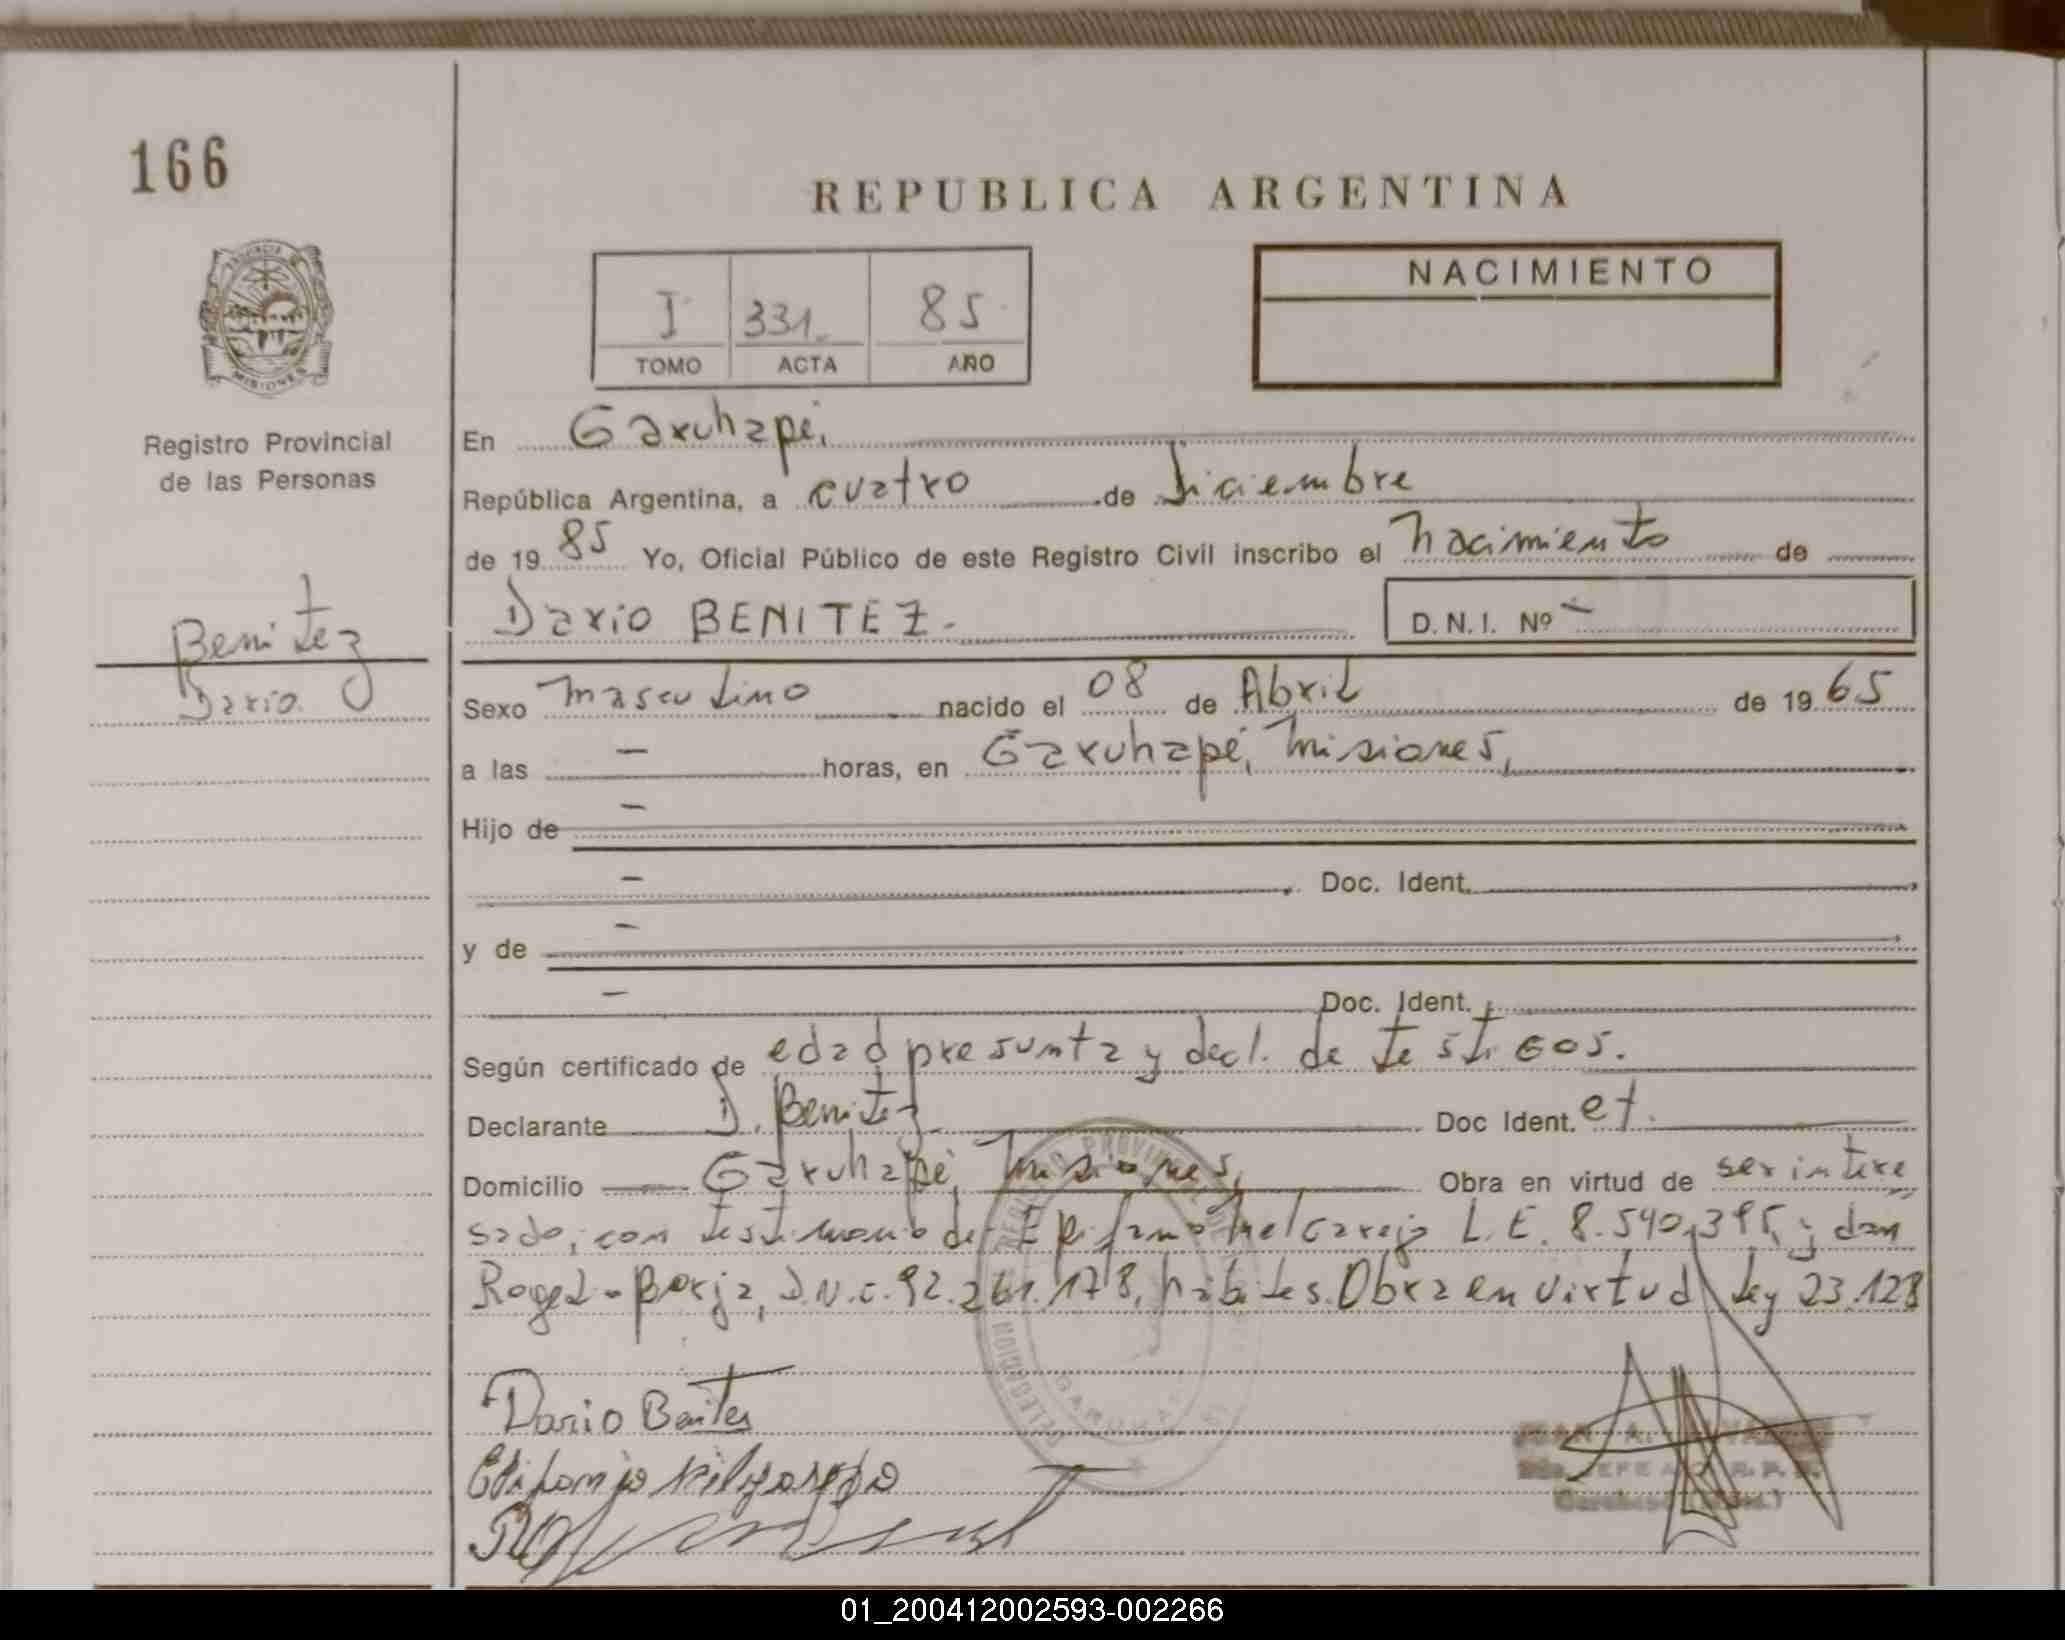 166
REPUBLICA ARGENTINA
PROVINCIA DE
MISIONES
I 331 85
TOMO ACTA AÑO
NACIMIENTO
Registro Provincial
de las Personas
Benitez
Dario.
En Garuhapé,
República Argentina, a cuatro de Diciembre
de 1985 Yo, Oficial Público de este Registro Civil inscribo el nacimiento de
Dario BENITEZ.-
D.N.I. Nº -
Sexo masculino nacido el 08 de Abril de 1965
a las - horas, en Garuhapé, Misiones,
Hijo de -
- Doc. Ident.
y de -
- Doc. Ident.
Según certificado de edad presunta y decl. de testigos.
Declarante D. Benitez Doc Ident. et.
Domicilio Garuhapé, Misiones, Obra en virtud de ser intere
sado, con testimonio de Epifanio L.E. 8.540.395, y
Borja, 92.261.178, habiles. Obra en virtud Ley 23.128
Dario Benites
GARUHAPE
01_200412002593-002266